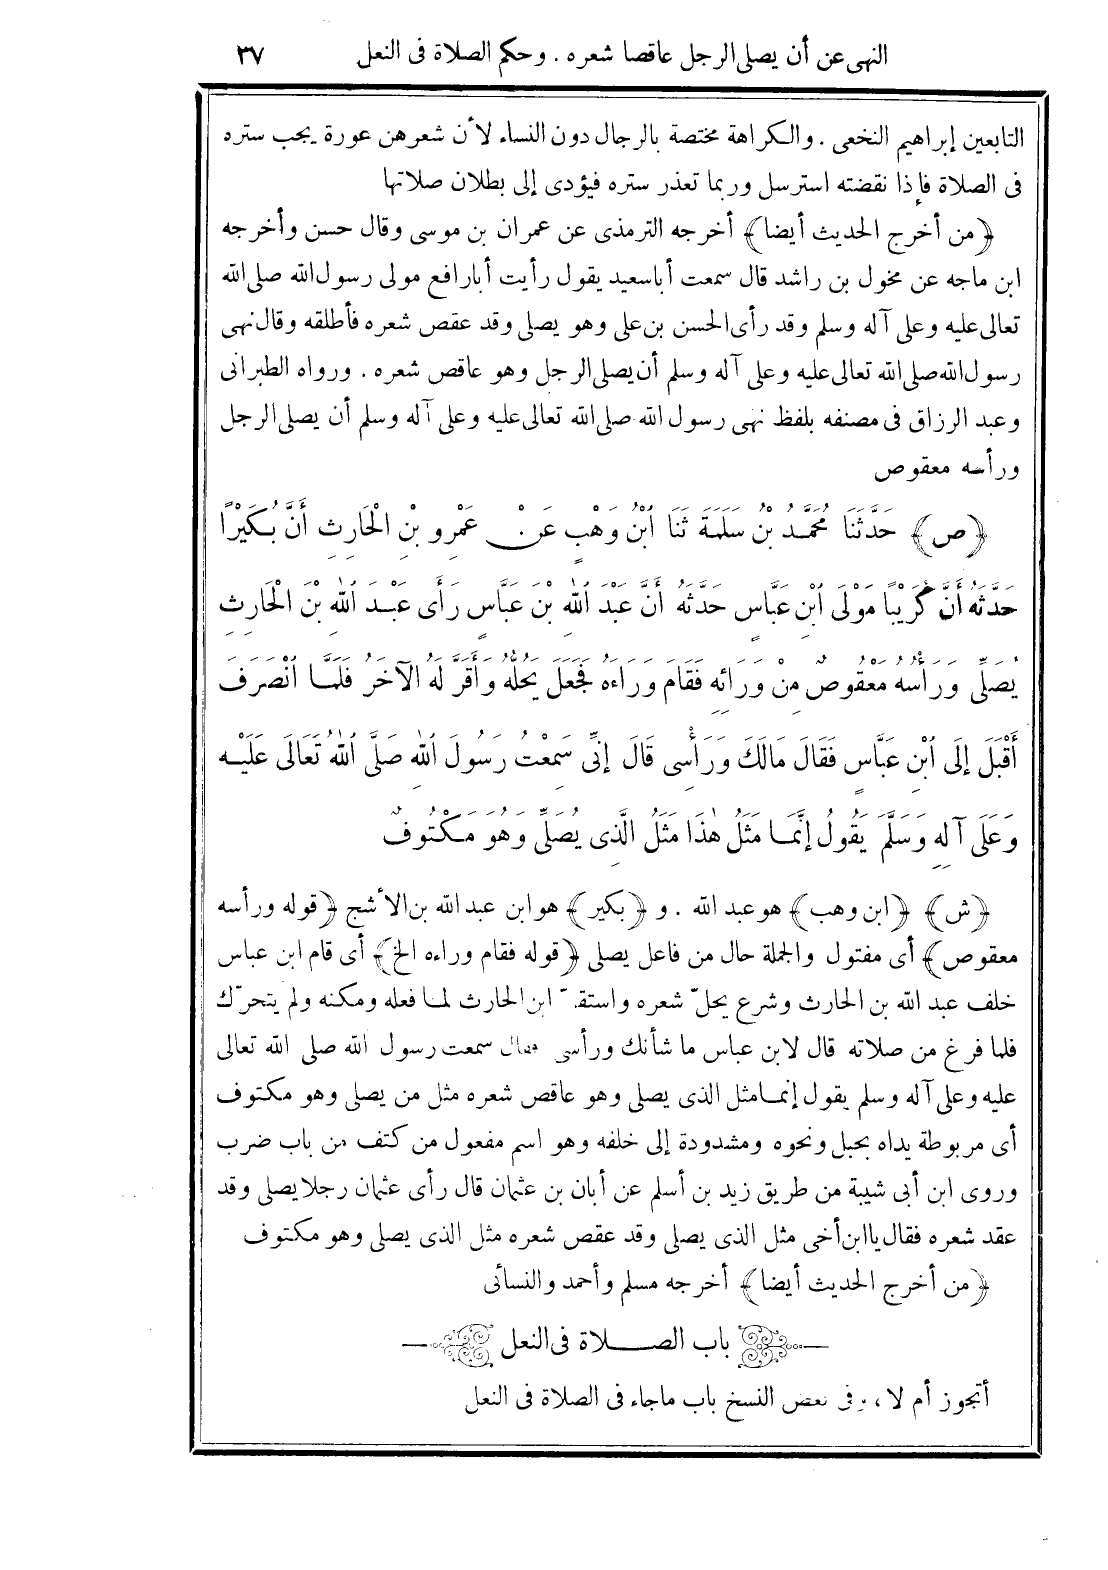 النهى عن أن يصلى الرجل عاقصا شعره . وحكم الصلاة فى النعل ٣٧
التابعين إبراهيم النخعى . والكراهة مختصة بالرجال دون النساء لأن شعرهن عورة يجب ستره
فى الصلاة فإذا نقضته استرسل وربما تعذر ستره فيؤدى إلى بطلان صلاتها
﴿من أخرج الحديث أيضا﴾ أخرجه الترمذى عن عمران بن موسى وقال حسن وأخرجه
ابن ماجه عن مخول بن راشد قال سمعت أباسعيد يقول رأيت أبارافع مولى رسول الله صلى الله
تعالى عليه وعلى آله وسلم وقد رأى الحسن بن على وهو يصلى وقد عقص شعره فأطلقه وقال نهى
رسول الله صلى الله تعالى عليه وعلى آله وسلم أن يصلى الرجل وهو عاقص شعره . ورواه الطبرانى
وعبد الرزاق فى مصنفه بلفظ نهى رسول الله صلى الله تعالى عليه وعلى آله وسلم أن يصلى الرجل
ورأسه معقوص
﴿ص﴾ حَدَّثَنَا مُحَمَّدُ بْنُ سَلَمَةَ ثَنَا ابْنُ وَهْبٍ عَنْ عَمْرِو بْنِ الْحَارِثِ أَنَّ بُكَيْرًا
حَدَّثَهُ أَنَّ كُرَيْبًا مَوْلَى ابْنِ عَبَّاسٍ حَدَّثَهُ أَنَّ عَبْدَ اللهِ بْنَ عَبَّاسٍ رَأَى عَبْدَ اللهِ بْنَ الْحَارِثِ
يُصَلِّى وَرَأْسُهُ مَعْقُوصٌ مِنْ وَرَائِهِ فَقَامَ وَرَاءَهُ فَجَعَلَ يَحُلُّهُ وَأَقَرَّ لَهُ الْآخَرُ فَلَمَّا انْصَرَفَ
أَقْبَلَ إِلَى ابْنِ عَبَّاسٍ فَقَالَ مَالَكَ وَرَأْسِى قَالَ إِنِّى سَمِعْتُ رَسُولَ اللهِ صَلَّى اللهُ تَعَالَى عَلَيْهِ
وَعَلَى آلِهِ وَسَلَّمَ يَقُولُ إِنَّمَا مَثَلُ هٰذَا مَثَلُ الَّذِى يُصَلِّى وَهُوَ مَكْتُوفٌ
﴿ش﴾ ﴿ابن وهب﴾ هو عبد الله . و﴿بكير﴾ هو ابن عبد الله بن الأشج ﴿قوله ورأسه
معقوص﴾ أى مفتول والجملة حال من فاعل يصلى ﴿قوله فقام وراءه الخ﴾ أى قام ابن عباس
خلف عبد الله بن الحارث وشرع يحلّ شعره واستقرّ ابن الحارث لما فعله ومكنه ولم يتحرّك
فلما فرغ من صلاته قال لابن عباس ما شأنك ورأسى فقال سمعت رسول الله صلى الله تعالى
عليه وعلى آله وسلم يقول إنما مثل الذى يصلى وهو عاقص شعره مثل من يصلى وهو مكتوف
أى مربوطة يداه بحبل ونحوه ومشدودة إلى خلفه وهو اسم مفعول من كتف من باب ضرب
وروى ابن أبى شيبة من طريق زيد بن أسلم عن أبان بن عثمان قال رأى عثمان رجلا يصلى وقد
عقد شعره فقال ياابن أخى مثل الذى يصلى وقد عقص شعره مثل الذى يصلى وهو مكتوف
﴿من أخرج الحديث أيضا﴾ أخرجه مسلم وأحمد والنسائى
باب الصلاة فى النعل
أتجوز أم لا ، وفى بعض النسخ باب ماجاء فى الصلاة فى النعل